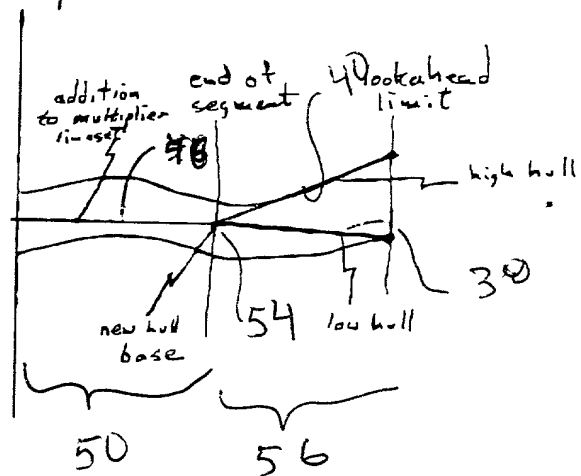 addition
to multiplier
end of
segment
40
lookahead
limit
high hull
new hull
base
54
low hull
30
50
56